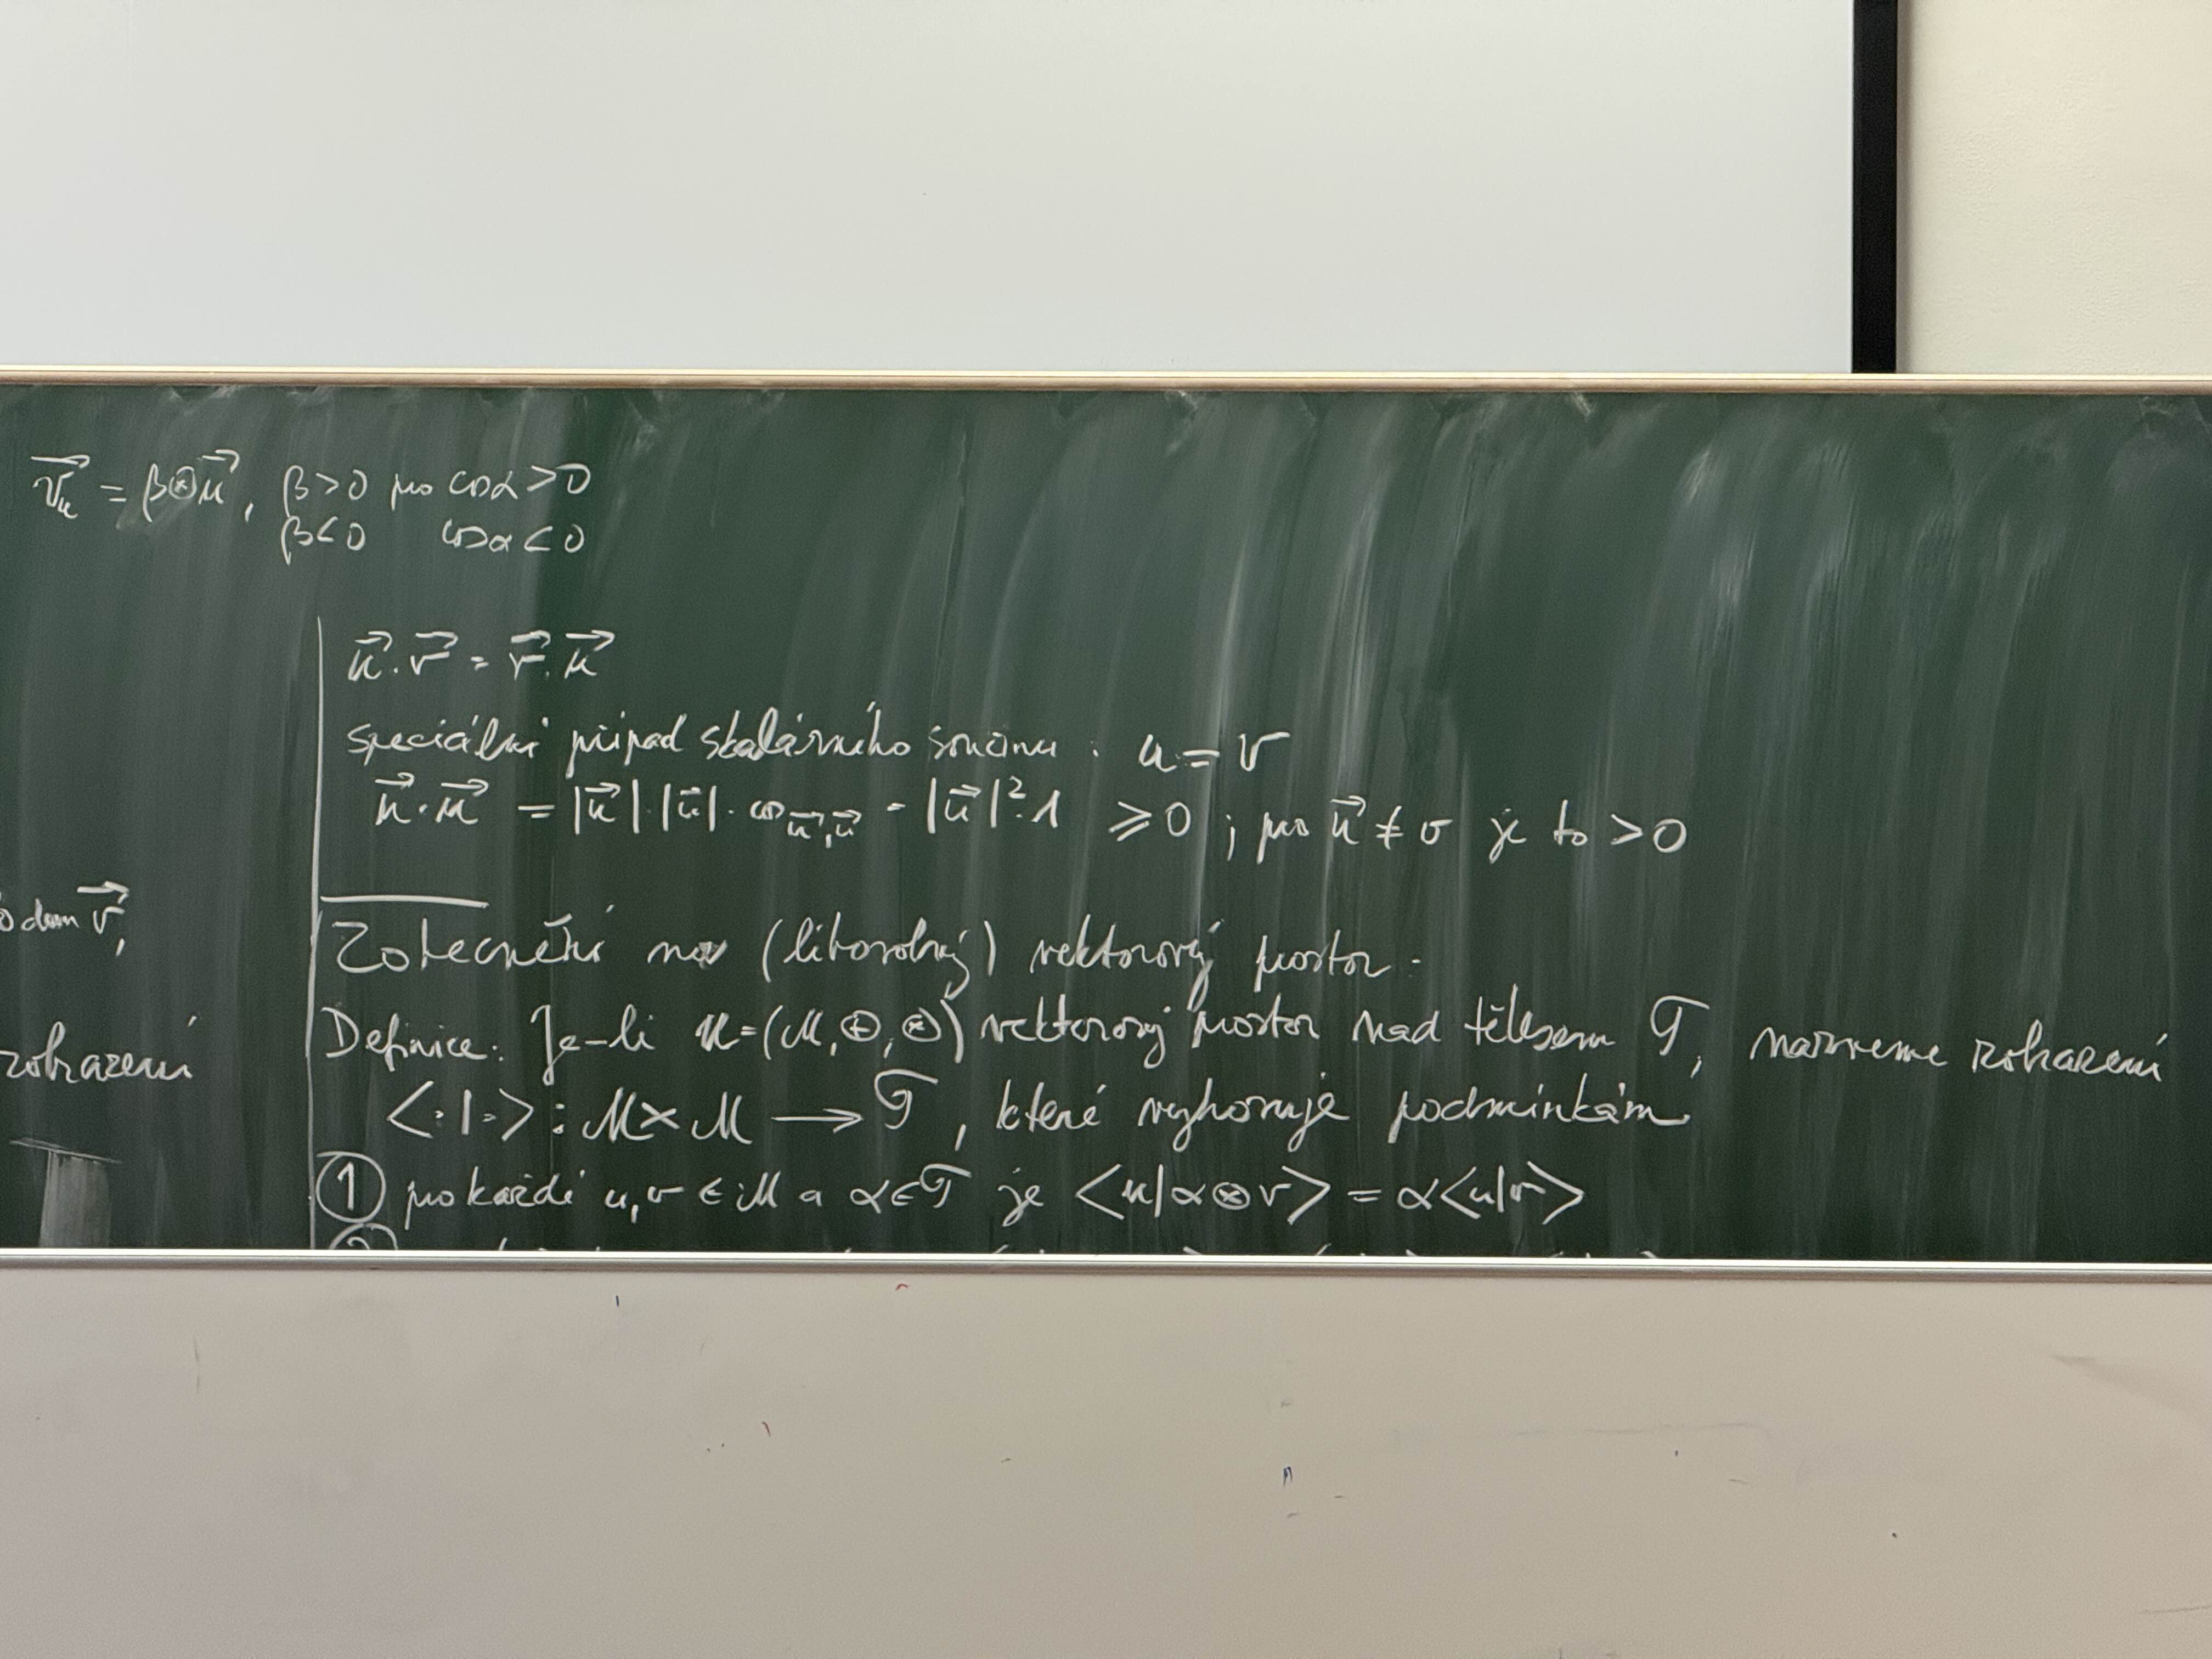 v⃗ᵤ = β⊗u⃗, β>0 pro cosα>0
β<0 cosα<0
u⃗.v⃗ = v⃗.u⃗
speciální případ skalárního součinu : u = v
u⃗·u⃗ = |u⃗|·|u⃗|·cos u⃗,u⃗ = |u⃗|²·1 ≥0 ; pro u⃗ ≠ σ je to >0
dem v⃗,
Zobecnění na (libovolný) vektorový prostor.
Definice: Je-li U=(M,⊕,⊗) vektorový prostor nad tělesem T, nazveme zobrazení
zobrazení
<·|·> : M×M ⟶ T, které vyhovuje podmínkám
① pro každé u,v ∈ M a α∈T je <u|α⊗v> = α<u|v>